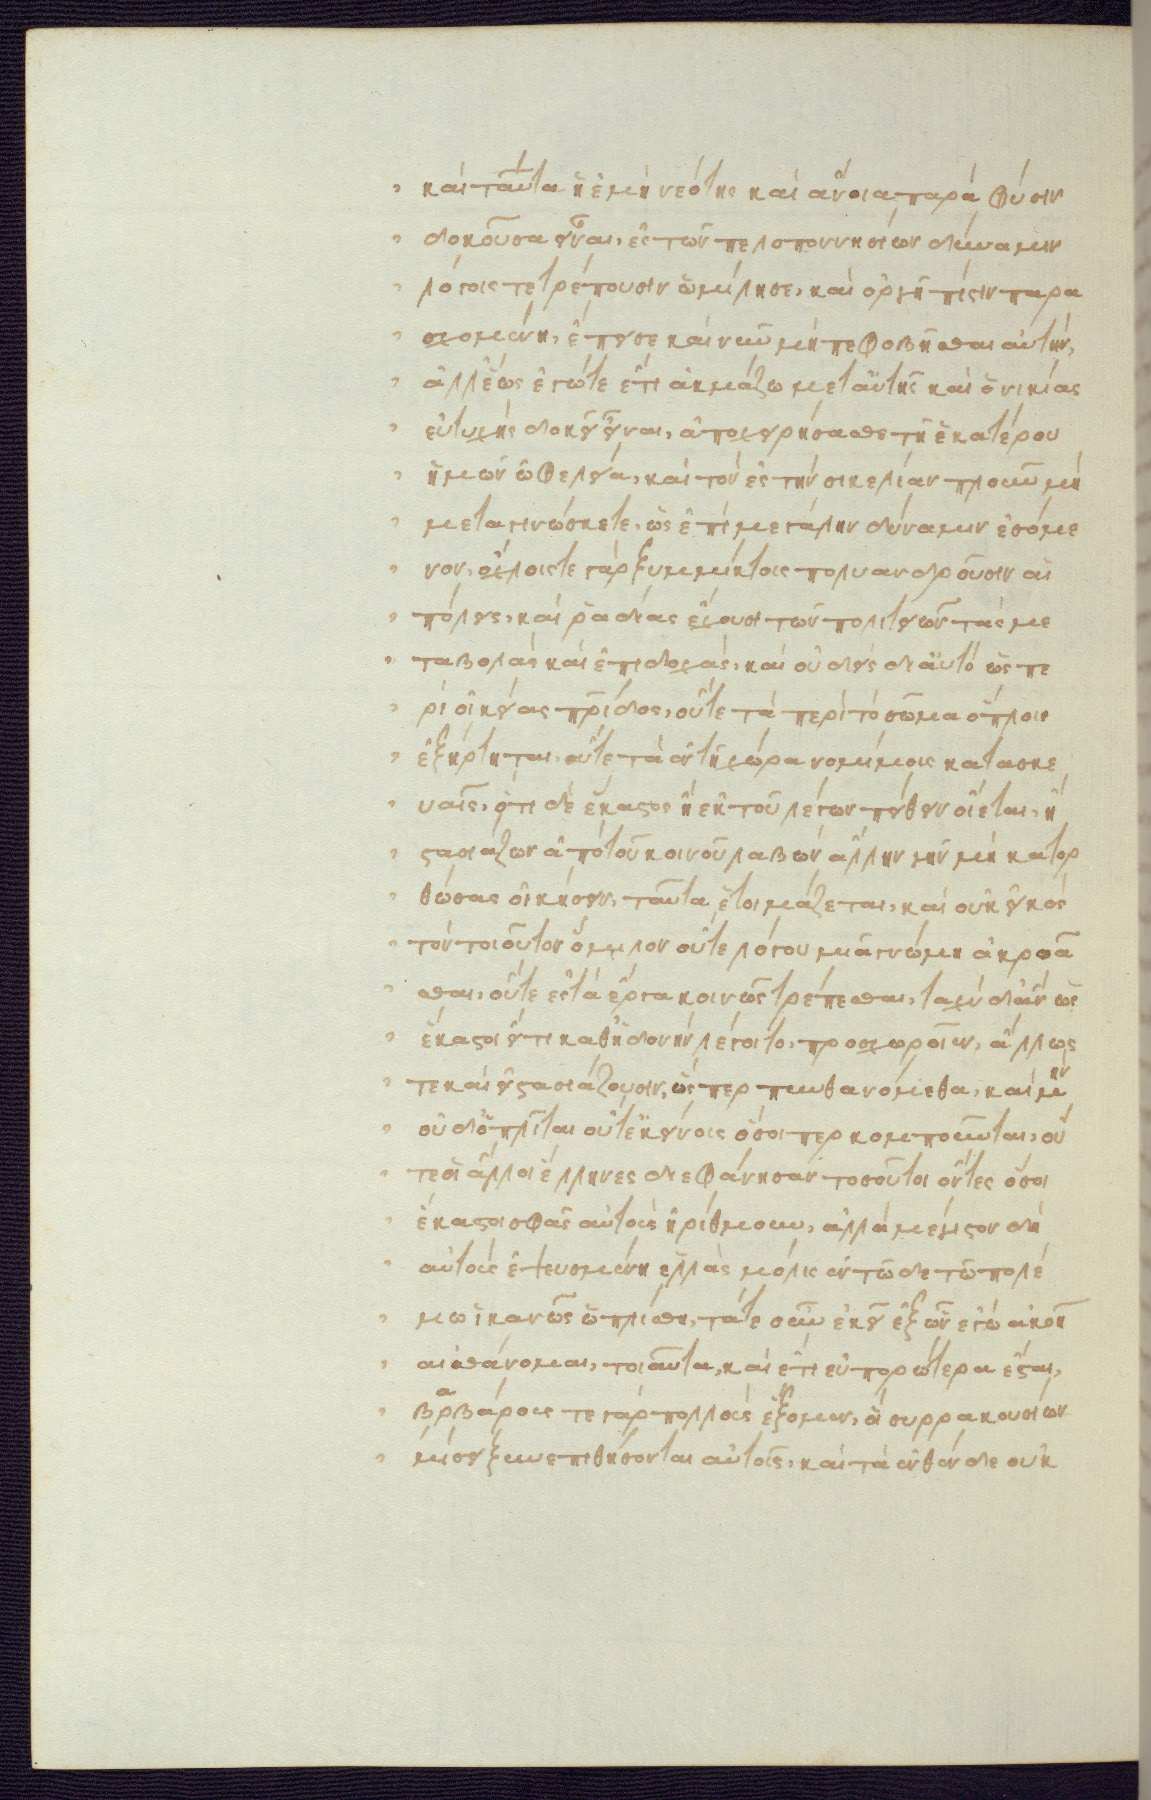 καὶ ταῦτα ἡ ἐμὴ νεότης καὶ ἄνοια παρὰ φύσιν
δοκοῦσα εἶναι, ἐς τὼν πελοποννησίων δύναμιν
λόγοις τε τρέπουσιν ὡμίλησε, καὶ ὀργῆ πίστιν παρα
σχομένη, ἔπεισε καὶ νῦν μὴ πεφοβῆσθαι αὐτὴν,
ἀλλ' ἕως ἐγώτε ἔτι ἀκμάζω μετ' αὐτῆς καὶ ὁ νικίας
εὐτυχὴς δοκεῖ εἶναι, ἀποχρήσασθε τῆ ἑκατέρου
ἡμῶν ὠφελεία, καὶ τὸν ἐς τὴν σικελίαν πλοῦν μὴ
μεταγινώσκετε, ὡς ἐπὶ μεγάλην δύναμιν ἐσόμε
νον, ὄχλοις τε γὰρ ξυμμίκτοις πολυανδροῦσιν αἱ
πόλεις, καὶ ῥαδίας ἔχουσι τῶν πολιτειῶν τὰς με
ταβολὰς καὶ ἐπιδοχάς, καὶ οὐδεὶς δι' αὐτὸ ὡς πε
ρὶ οἰκείας πρίδος, οὔτε τὰ περὶ τὸ σῶμα ὅπλοις
ἐξήρτηται, οὔτε τὰ ἐν τῆ χώρα νομίμοις κατασκε
υαῖς, ὅτι δὲ ἕκαστος ἢ ἐκ τοῦ λέγων πείθειν οἴεται, ἢ
στασιάζων ἀπὸ τοῦ κοινοῦ λαβὼν ἄλλην γῆν μὴ κατορ
θώσας οἰκήσειν, ταῦτα ἑτοιμάζεται, καὶ οὐκ εἰκὸς
τὸν τοιοῦτον ὅμιλον οὔτε λόγου μιᾶ γνώμη ἀκροᾶ
σθαι, οὔτε ἐς τὰ ἔργα κοινῶς τρέπεσθαι, ταχὺ δ' ἂν ὡς
ἕκαστοι εἴ τι καθ' ἡδονὴν λέγοιτο, προσχωροῖεν, ἄλλως
τε καὶ εἰ στασιάζουσιν, ὥσπερ πυνθανόμεθα, καὶ μὴν
οὐδ' ὁπλῖται οὔτ' ἐκείνοις ὅσοι περ κομποῦνται, οὔ
τε οἱ ἄλλοι ἕλληνες διεφάνησαν τοσοῦτοι ὄντες ὅσοι
ἕκαστοι σφᾶς αὐτοὺς ἠρίθμουν, ἀλλὰ μέγιστον δὴ
αὐτοὺς ἐψευσμένη ἑλλὰς μόλις ἐν τῶδε τῶ πολέ
μω ἱκανῶς ὡπλίσθη, τά τε οὖν ἐκεῖ ἐξ ὧν ἐγὼ ἀκοῆ
αἰσθάνομαι, τοιαῦτα, καὶ ἔτι εὐπορώτερα ἔσται,
βαρβάρους τε γὰρ πολλοὺς ἕξομεν, οἳ συρρακουσίων
μίσει ξυνεπιθήσονται αὐτοῖς, καὶ τὰ ἐνθένδε οὐκ